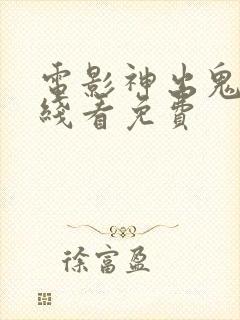 電影神出鬼
綫看免費
徐富盈